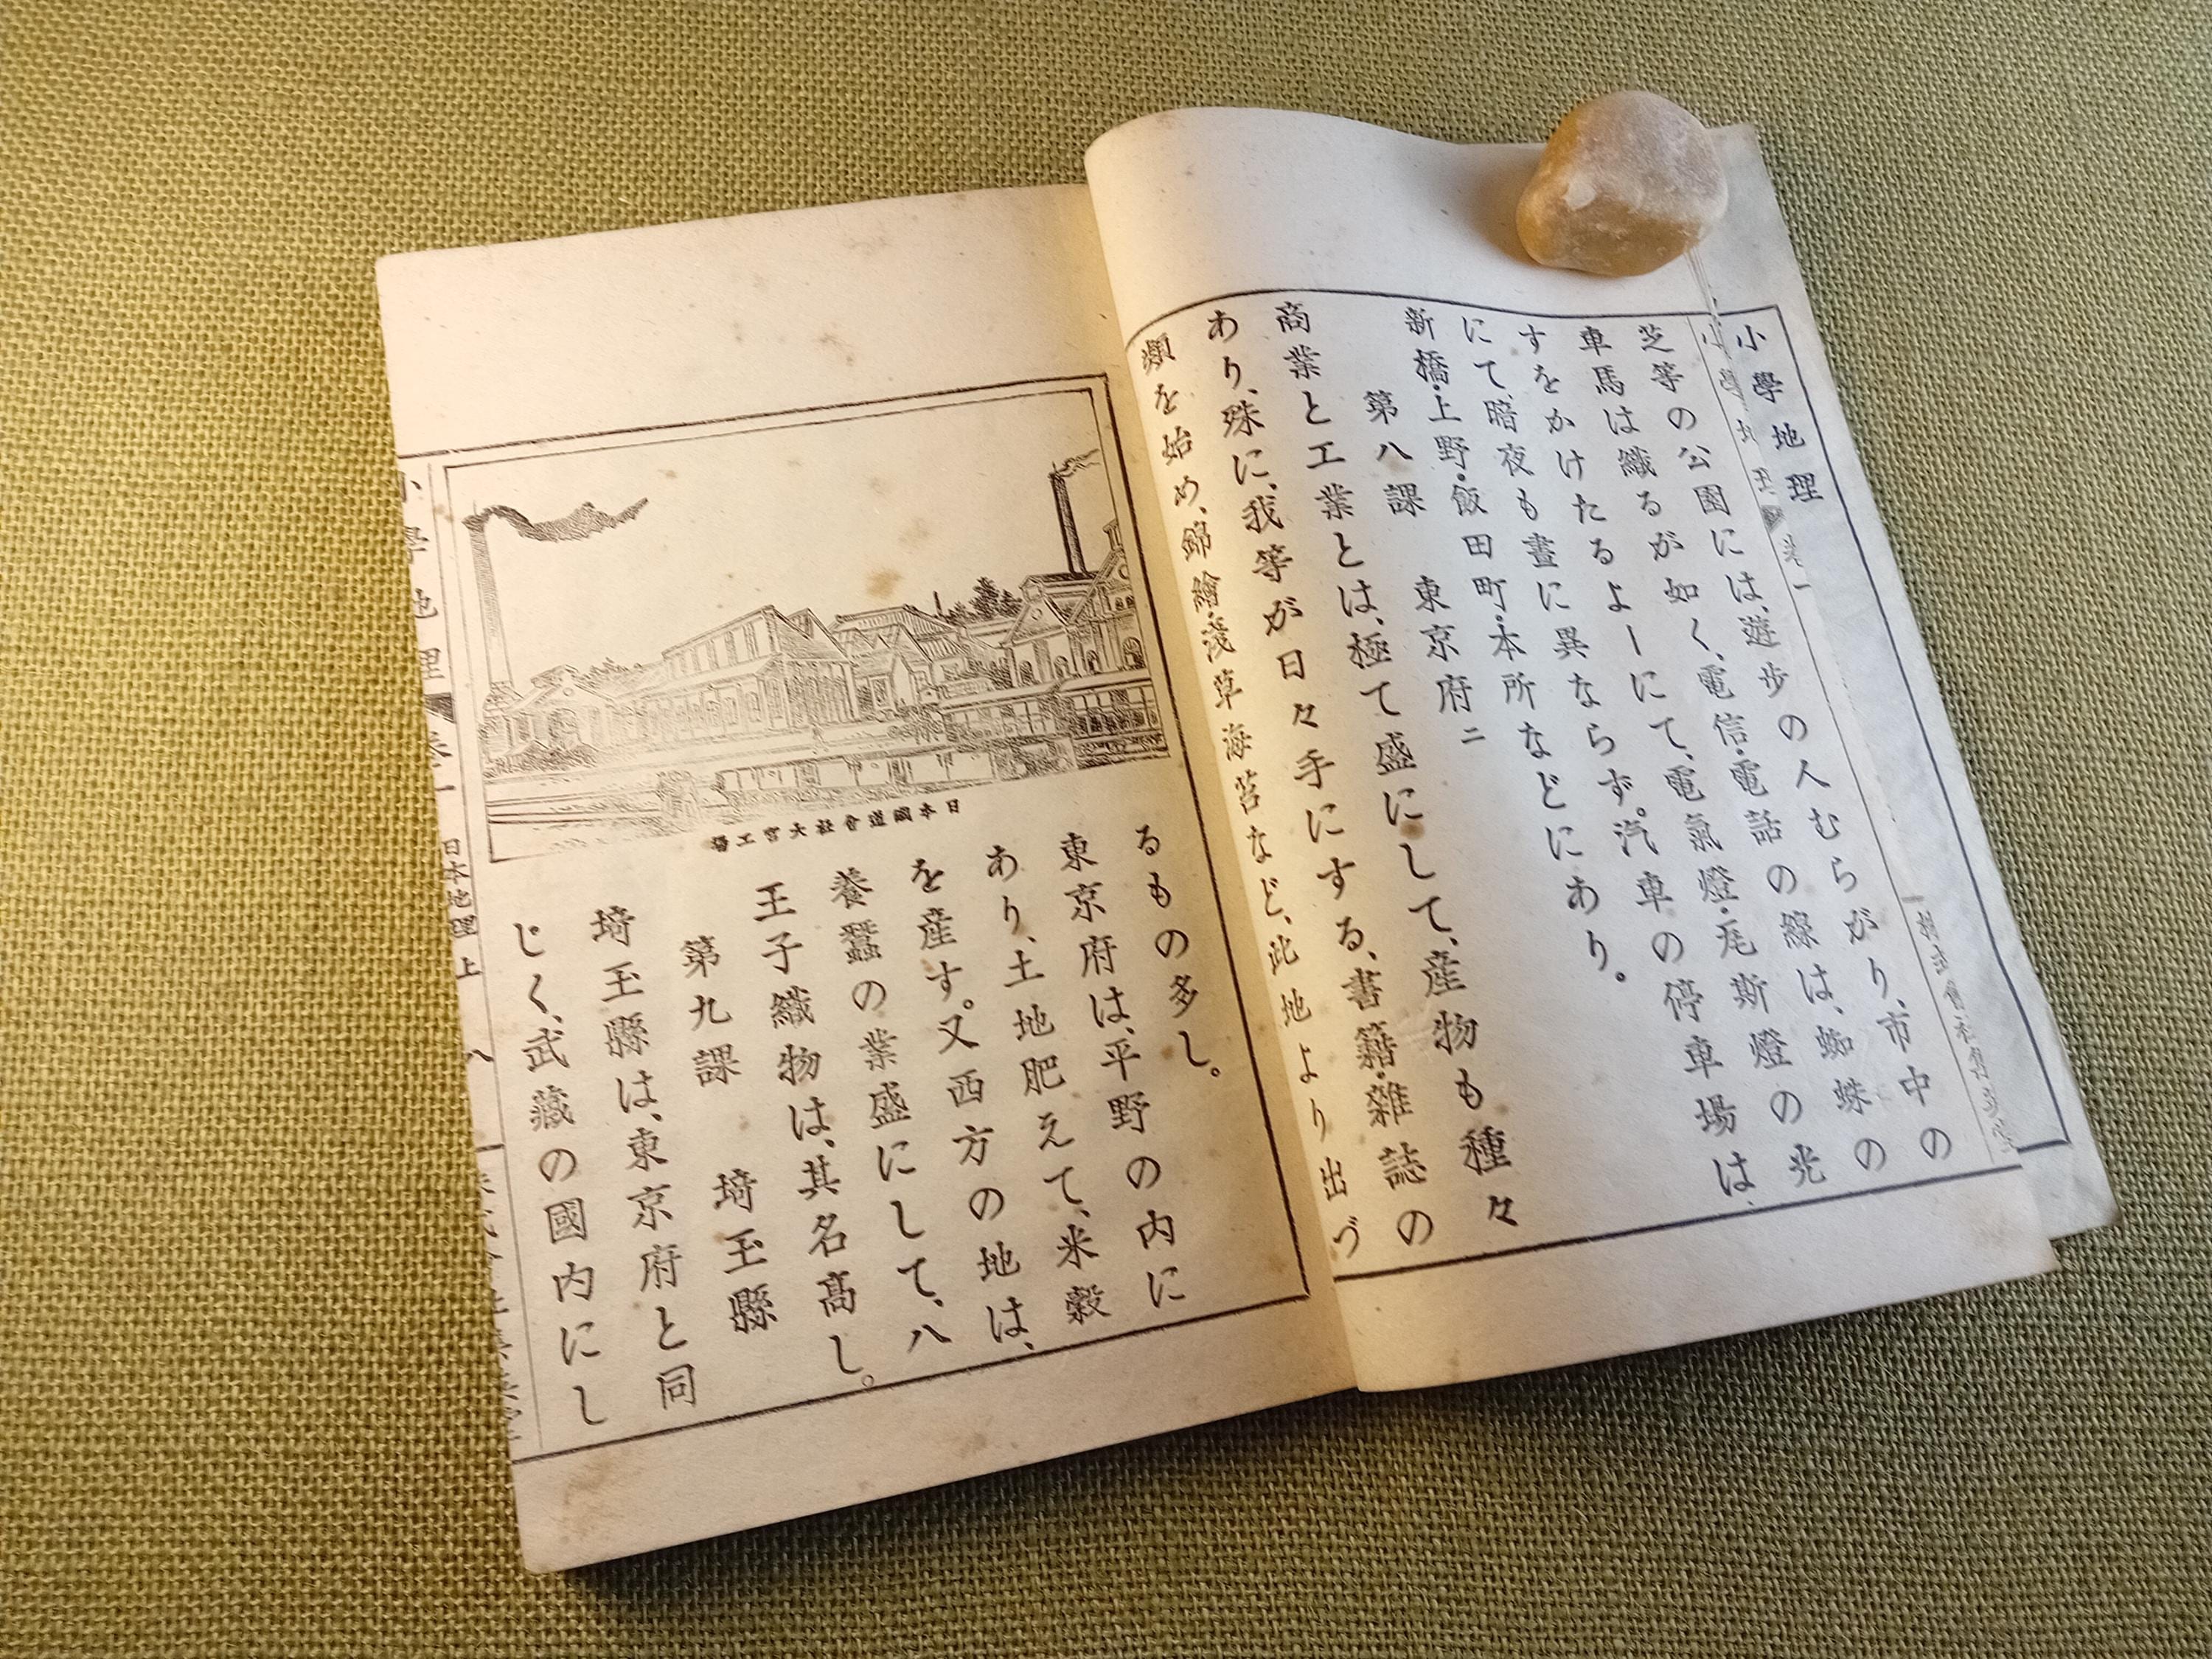 小學地理
卷一
芝等の公園には、遊步の人むらがり、市中の
車馬は織るが如く、電信・電話の線は、蜘蛛の
すをかけたるよーにて、電氣燈・瓦斯燈の光
にて、暗夜も晝に異ならず。汽車の停車場は、
新橋・上野・飯田町・本所などにあり。
第八課 東京府ニ
商業と工業とは、極て盛にして、産物も種々
あり、殊に、我等が日々手にする、書籍・雜誌の
類を始め、錦繪・淺草海苔など、此地より出づ
るもの多し。
東京府は、平野の内に
あり、土地肥えて、米穀
を産す。又西方の地は、
養蠶の業盛にして、八
王子織物は、其名髙し。
第九課 埼玉縣
埼玉縣は、東京府と同
じく、武藏の國内にし
日本鐵道會社大宮工場
小學地理 卷一 日本地理上 八